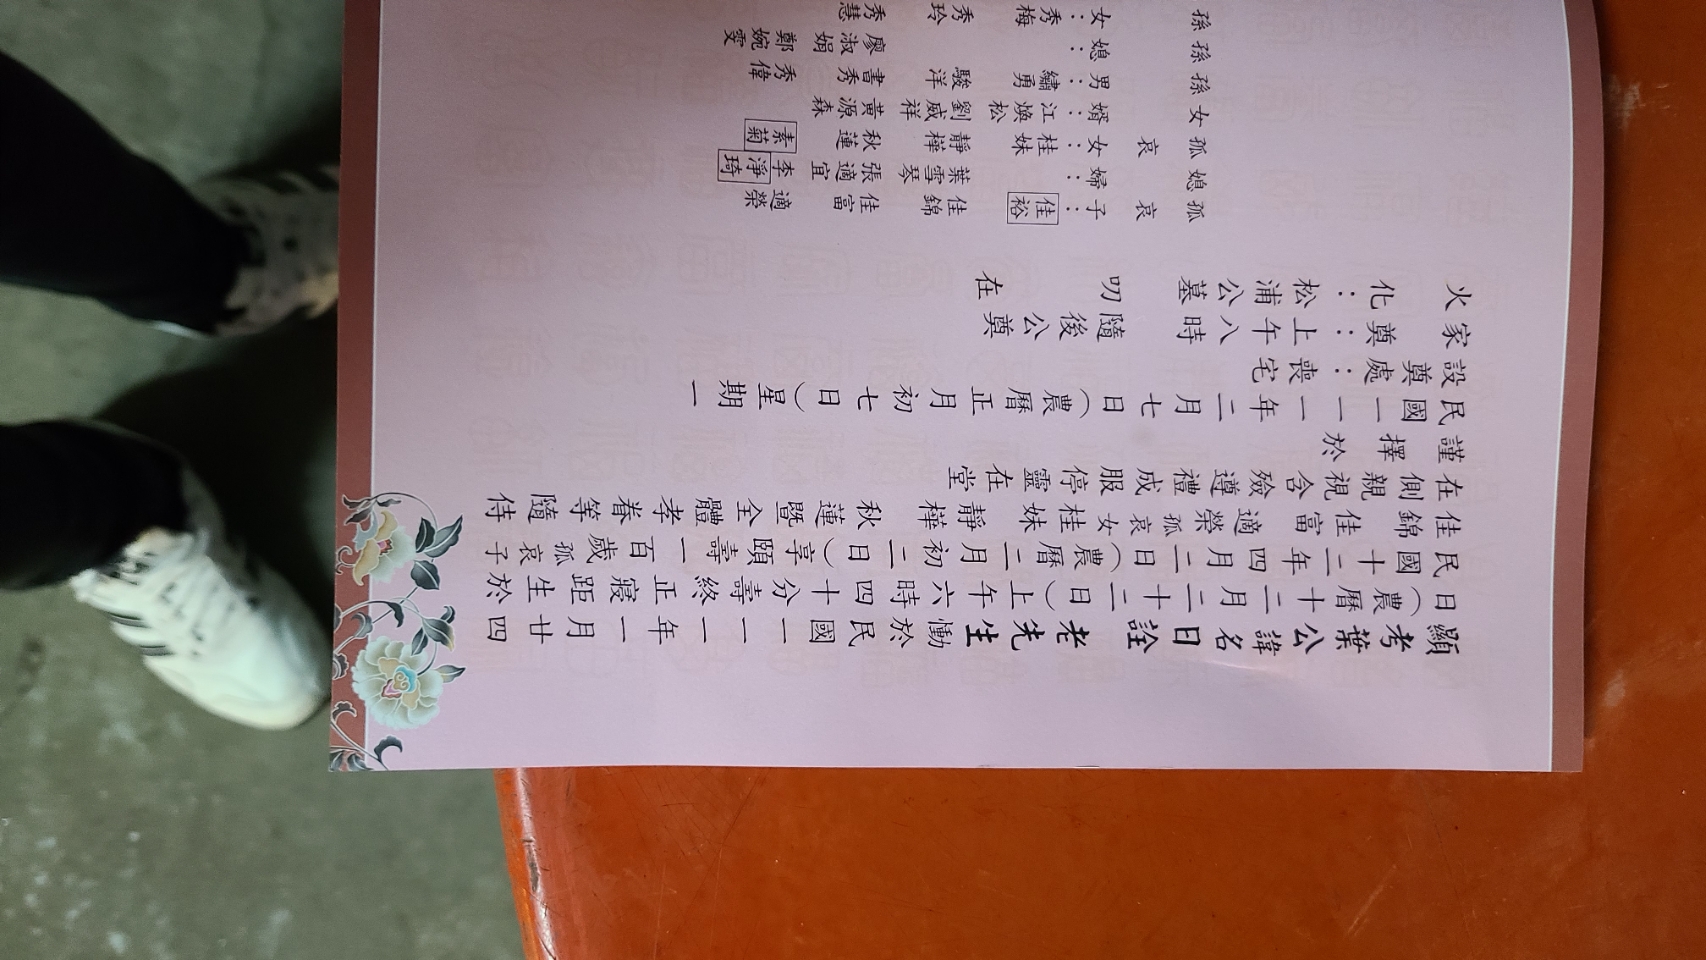 顯考葉公諱名日詮老先生慟於民國一一一年一月廿四
日(農曆十二月二十二日)上午六時四十分壽終正寢距生於
民國十二年四月二日(農曆二月初二日)享頤壽一百歲孤哀子
佳錦 佳富 適榮孤哀女桂妹 靜樺 秋蓮暨全體孝眷等隨侍
在側親視含殮遵禮成服停靈在堂
謹擇於
民國一一一年二月七日(農曆正月初七日)星期一
設奠處：喪宅
家奠：上午八時 隨後公奠
火化：松浦公墓 叨在
孤哀子：佳裕 佳錦 佳富 適榮
媳婦： 葉雪琴 張適宜 李淨琦
孤哀女：桂妹 靜樺 秋蓮 素菊
女婿：江煥松 劉威祥 黃源森
孫男：繡勇 駿洋 書秀 秀偉
孫媳： 廖淑娟 鄭婉雯
孫女：秀梅 秀玲 秀慧